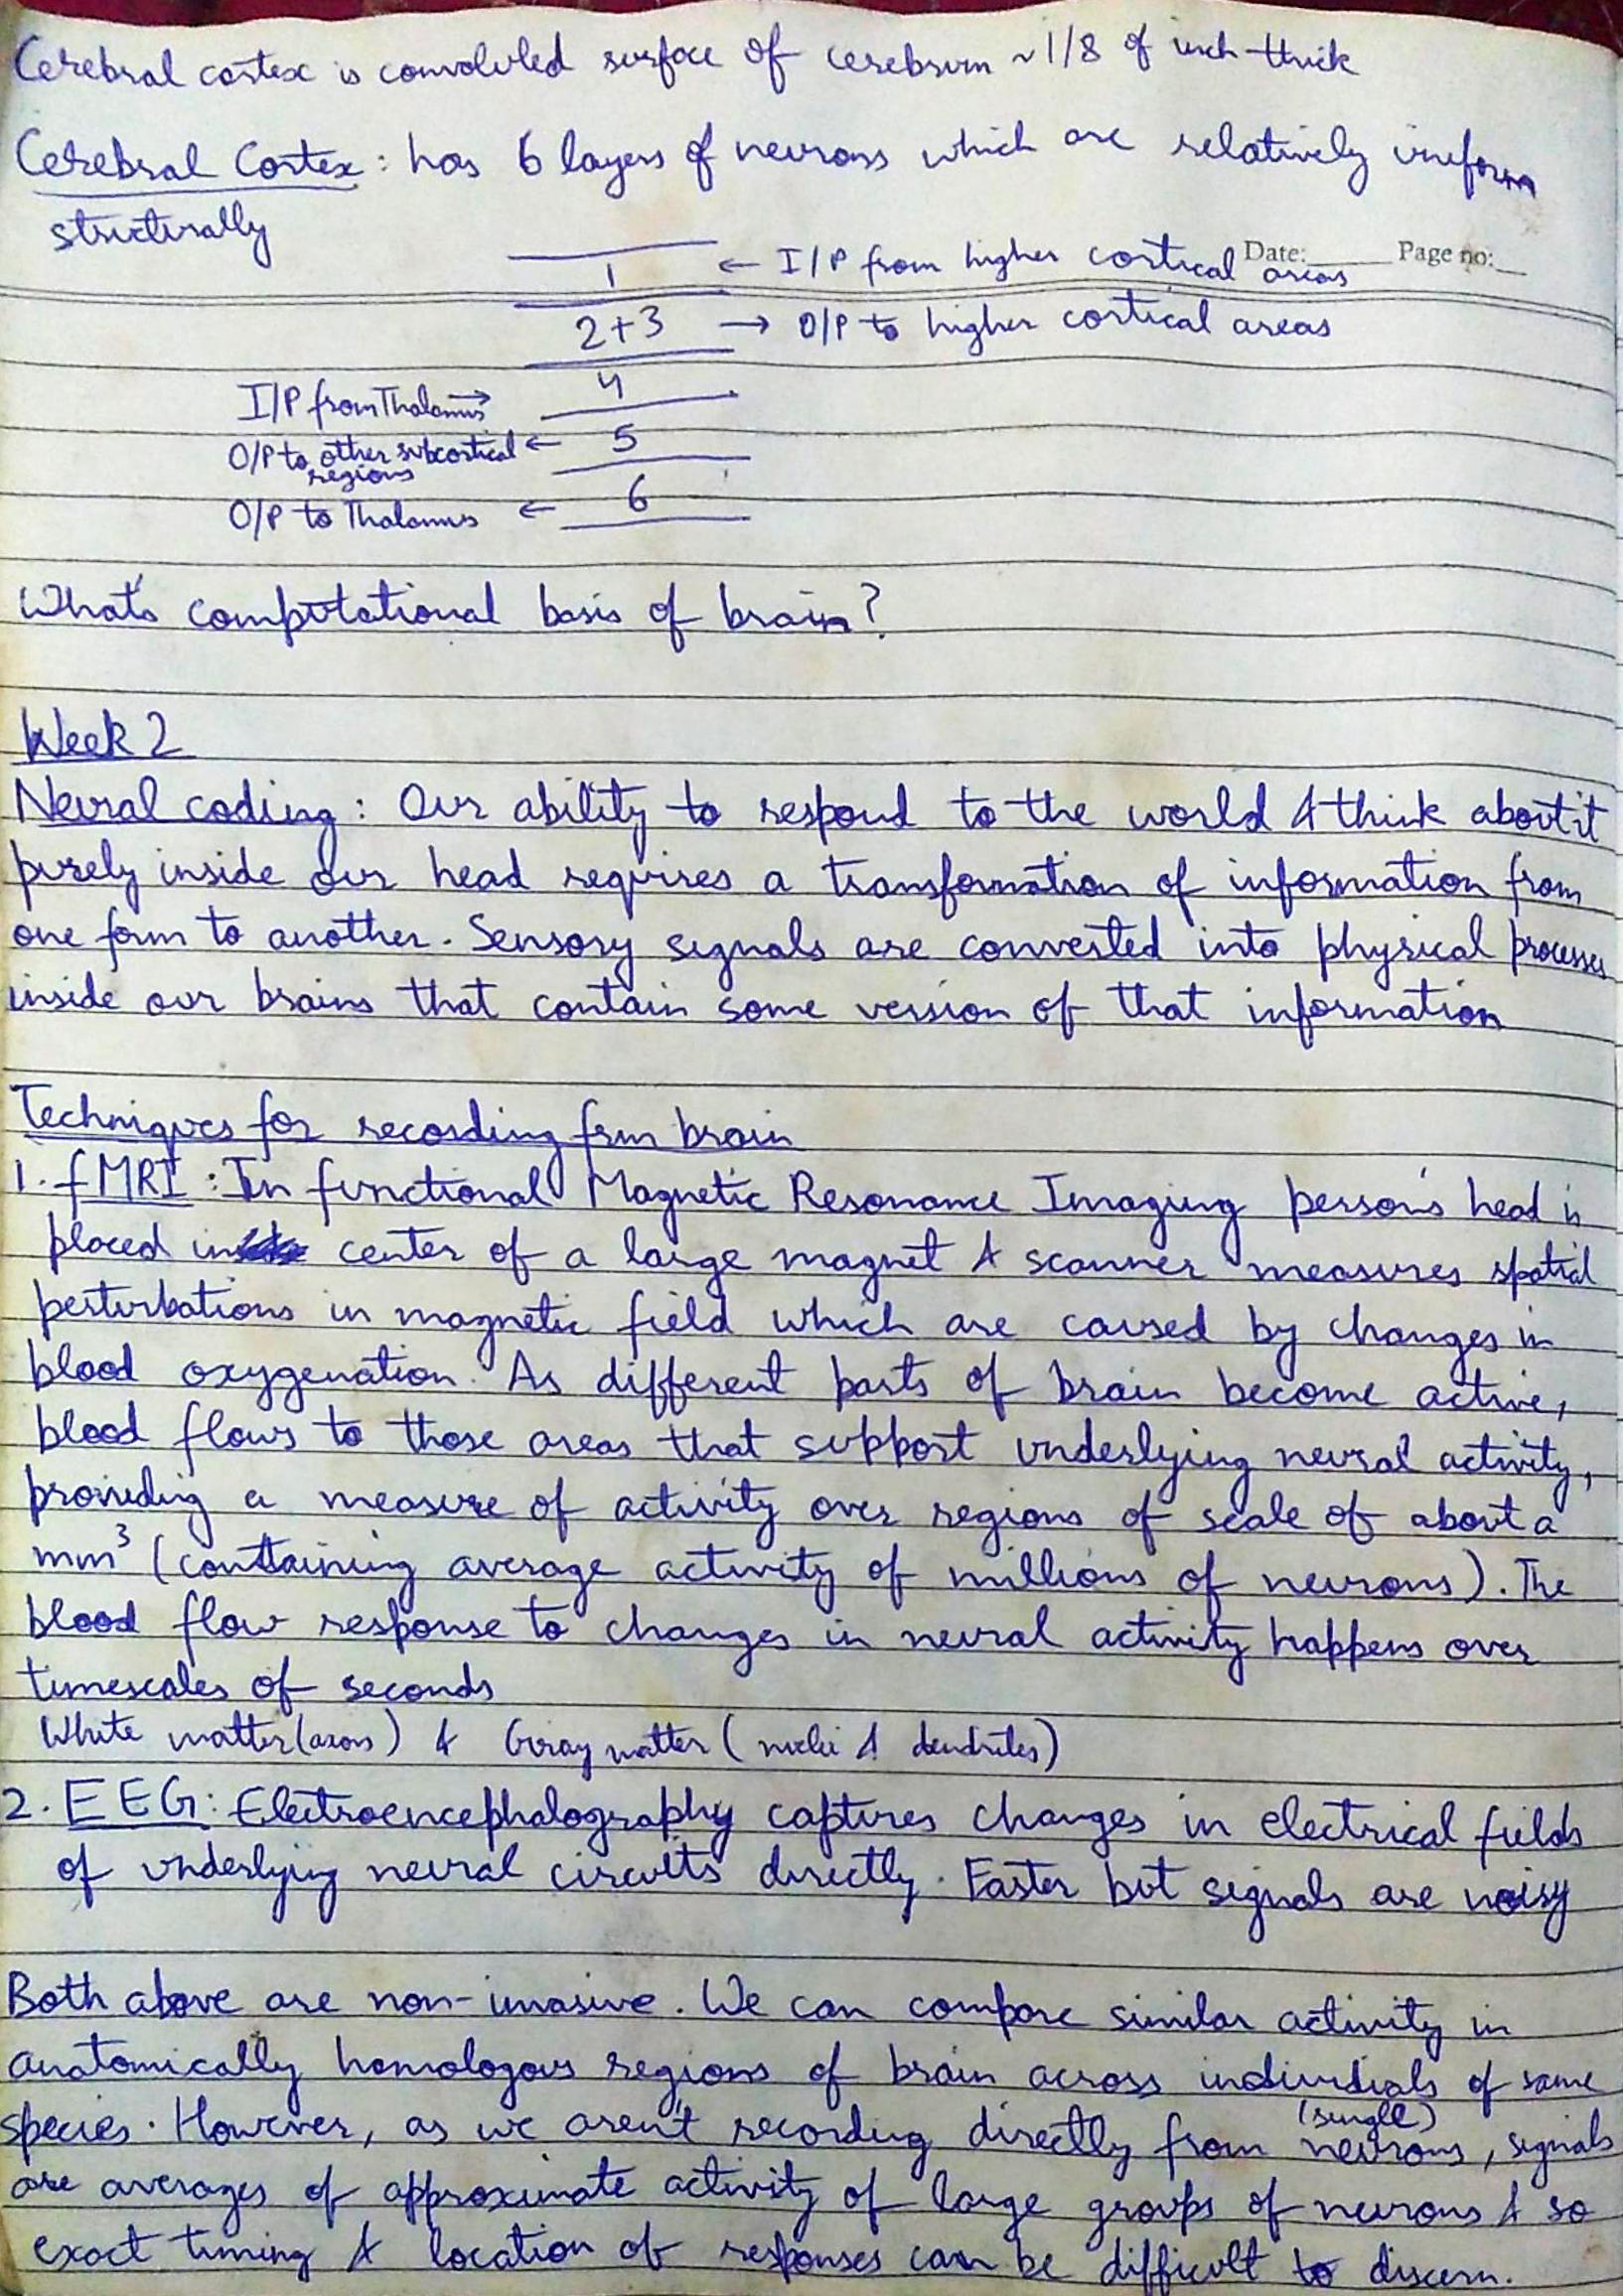 Cerebral cortex is convoluted surface of cerebrum ~1/8 of inch thick
Cerebral Cortex: has 6 layers of neurons which are relatively uniform
structurally
Date: Page no:
1 ← I/P from higher cortical areas
2+3 → O/P to higher cortical areas
I/P from Thalamus → 4
O/P to other subcortical ← 5
regions
O/P to Thalamus ← 6
What's computational basis of brain?
Week 2
Neural coding: Our ability to respond to the world & think about it
purely inside our head requires a transformation of information from
one form to another. Sensory signals are converted into physical processes
inside our brains that contain some version of that information
Techniques for recording from brain
1. fMRI: In functional Magnetic Resonance Imaging person's head is
placed in center of a large magnet & scanner measures spatial
perturbations in magnetic field which are caused by changes in
blood oxygenation. As different parts of brain become active,
blood flows to those areas that support underlying neural activity,
providing a measure of activity over regions of scale of about a
mm³ (containing average activity of millions of neurons). The
blood flow response to changes in neural activity happens over
timescales of seconds
White matter (axons) & Gray matter (nuclei & dendrites)
2. EEG: Electroencephalography captures changes in electrical fields
of underlying neural circuits directly. Faster but signals are noisy
Both above are non-invasive. We can compare similar activity in
anatomically homologous regions of brain across individuals of same
species. However, as we aren't recording directly from (single) neurons, signals
are averages of approximate activity of large groups of neurons & so
exact timing & location of responses can be difficult to discern.